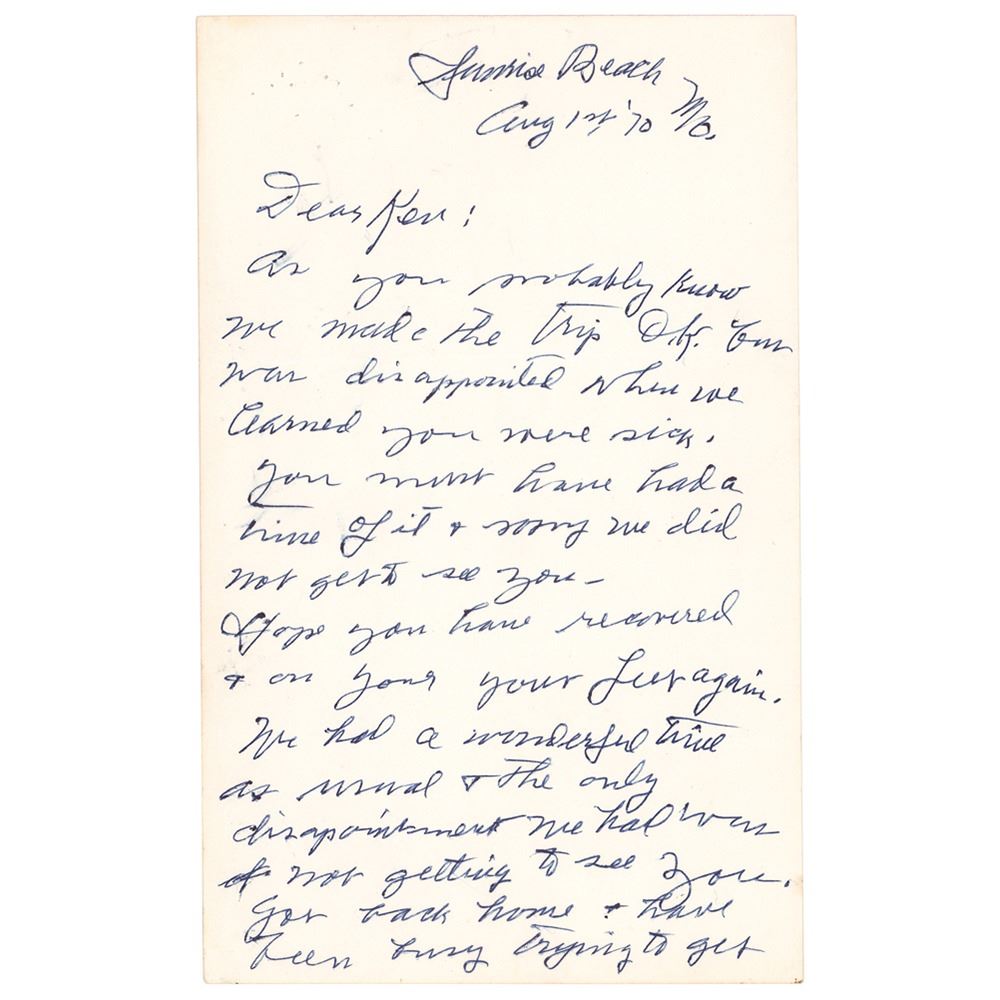 Sunrise Beach
Aug 1st '70 Mo.
Dear Ken:
As you probably know
we made the trip O.K. but
was disappointed when we
learned you were sick.
You must have had a
time of it + sorry we did
not get to see you -
Hope you have recovered
+ on your your feet again.
We had a wonderful time
as usual + the only
disapointment we had was
not getting to see you.
Got back home + have
been busy trying to get